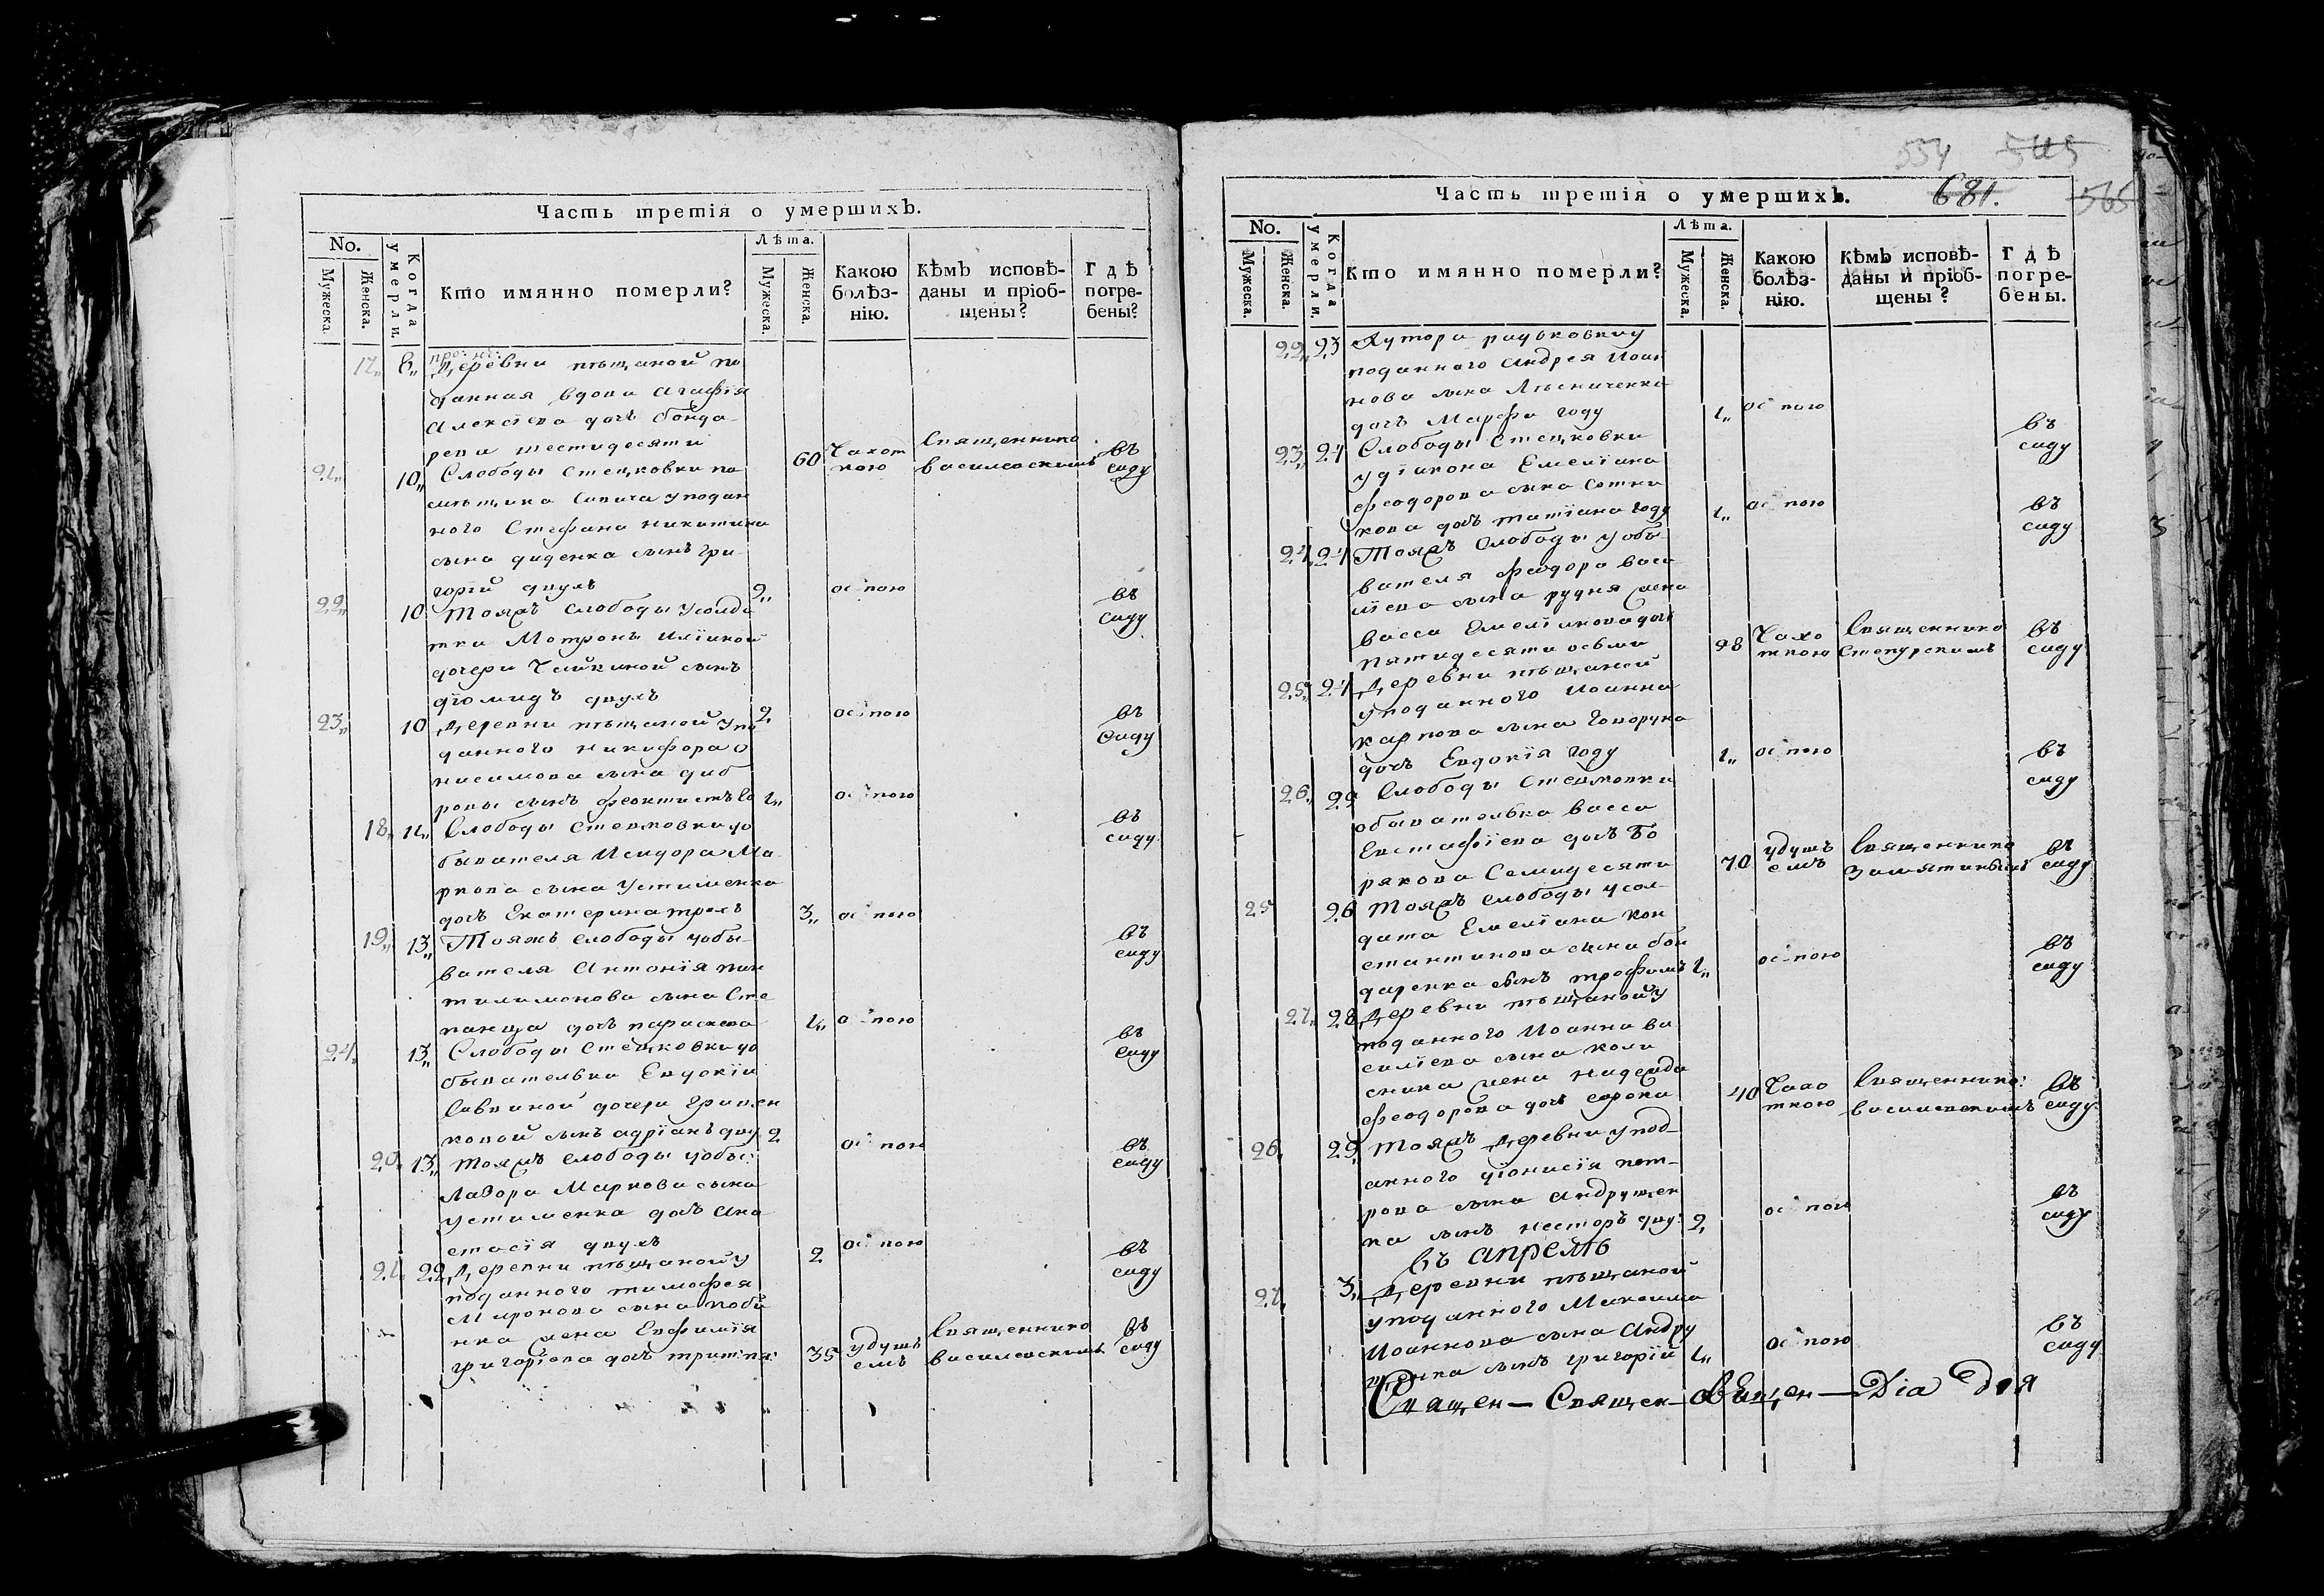 Часть третія о умершихъ.
No. Когда умерли. Кто имянно померли? Лѣта. Какою болѣз-нію. Кѣмъ исповѣ-даны и пріоб-щены? Гдѣ погре-бены?
Мужеска. Женска. Мужеска. Женска.
17,, 8,, Деревни пѣщаной по
данная вдова Агафія
Алексіева дочь бонда
рева шестидесяти 60 Чахот кою Священнико василевскимъ въ саду
21,, 10,, Слободы Стецковки по
мѣщика Савича уподан
ного Стефана Никитина
сына диденка сынъ гри
горій двухъ 2,, оспою въ саду
22,, 10 Тояжъ слободы усолда
тки Мотроны
дочери Чайкиной сынъ
діомидъ двухъ 2, оспою въ саду
23,, 10 Деревни пѣщаной упо
данного Никифора о
нисимова сына диб
ровы сынъ феоктистъ 1,, оспою въ саду
18,, 11,, Слободы Стецковки уо
бывателя Исидора Ма
ркова сына Устименка
дочь Екатерина трохъ 3,, оспою въ саду
19,, 13,, Тояжъ слободы уобы-
вателя Антонія пан
тилимонова сына Сте
панца дочь параскева 1,, оспою въ саду
24,, 13,, Слободы Стецковки уо
бывателки Евдокіи
Саввиной дочери Грицен
ковой сынъ адріанъ дву 2 оспою въ саду
20,, 13,, Тояжъ слободы уобы:
Лавора Маркова сына
Устименка дочь Ана
стасія двухъ 2 оспою въ саду
21, 22, Деревни пѣщаной у
поданного тимофея
Миронова сына
нка жена Евфимія
григоріева дочь 35 удушь емъ Священнико василевскимъ въ саду
554 545
681. 565
Часть третія о умершихъ.
No. Когда умерли. Кто имянно померли? Лѣта. Какою болѣз-нію. Кѣмъ исповѣ-даны и пріоб-щены? Гдѣ погре-бены.
Мужеска. Женска. Мужеска. Женска.
22,, 23 Хутора радьковки у
поданного Андрея Иоан
нова сына Лѣсниченка
дочь Марфа году 1,, оспою въ саду
23,, 24 Слободы Стецковки
удіакона Емеліана
феодорова сына Сотни
кова дочь татіана году 1,, оспою въ саду
24, 24 Тояжъ слободы уобы-
вателя феодора васи
ліева сына рудня жена
васса Емеліанова дочь
пятидесяти осьми 98 Чахо ткою Священнико въ саду
25,, 24 Деревни пѣщаной
уподанного Иоанна
карпова сына Говоруна
дочь Евдокія году 1,, оспою въ саду
26,, 29 Слободы Стецковки
обывателька васса
Евстафіева дочь Бо
рякова Семидесяти 70 удушь емъ Священнико въ саду
25 26 Тояжъ слободы усол-
дата Емеліана кон
стантинова сына бон
даренка сынъ трофимъ 1,, оспою въ саду
27,, 28 Деревни пѣщаной у
поданного Иоанна ва
силіева сына коле
сника жена надежда
феодорова дочь сорока 40 Чахо ткою Священнико: василевскимъ въ саду
26, 29, Тояжъ Деревни упод-
анного діонисія пет-
рова сына Андрущен
ка сынъ несторъ дву: 2, оспою въ саду
въ апрелѣ
27, 3,, Деревни пѣщаной
уподанного Максима
Иоаннова сына Андру
щенка сынъ григорій 1,, оспою въ саду
Свящ,ен— Священ— Діа